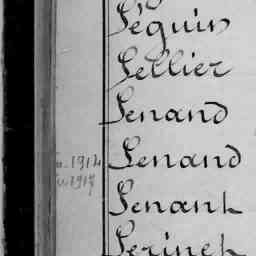 Séguin
Sellier
Senand
1914 Senand
1917
Senant